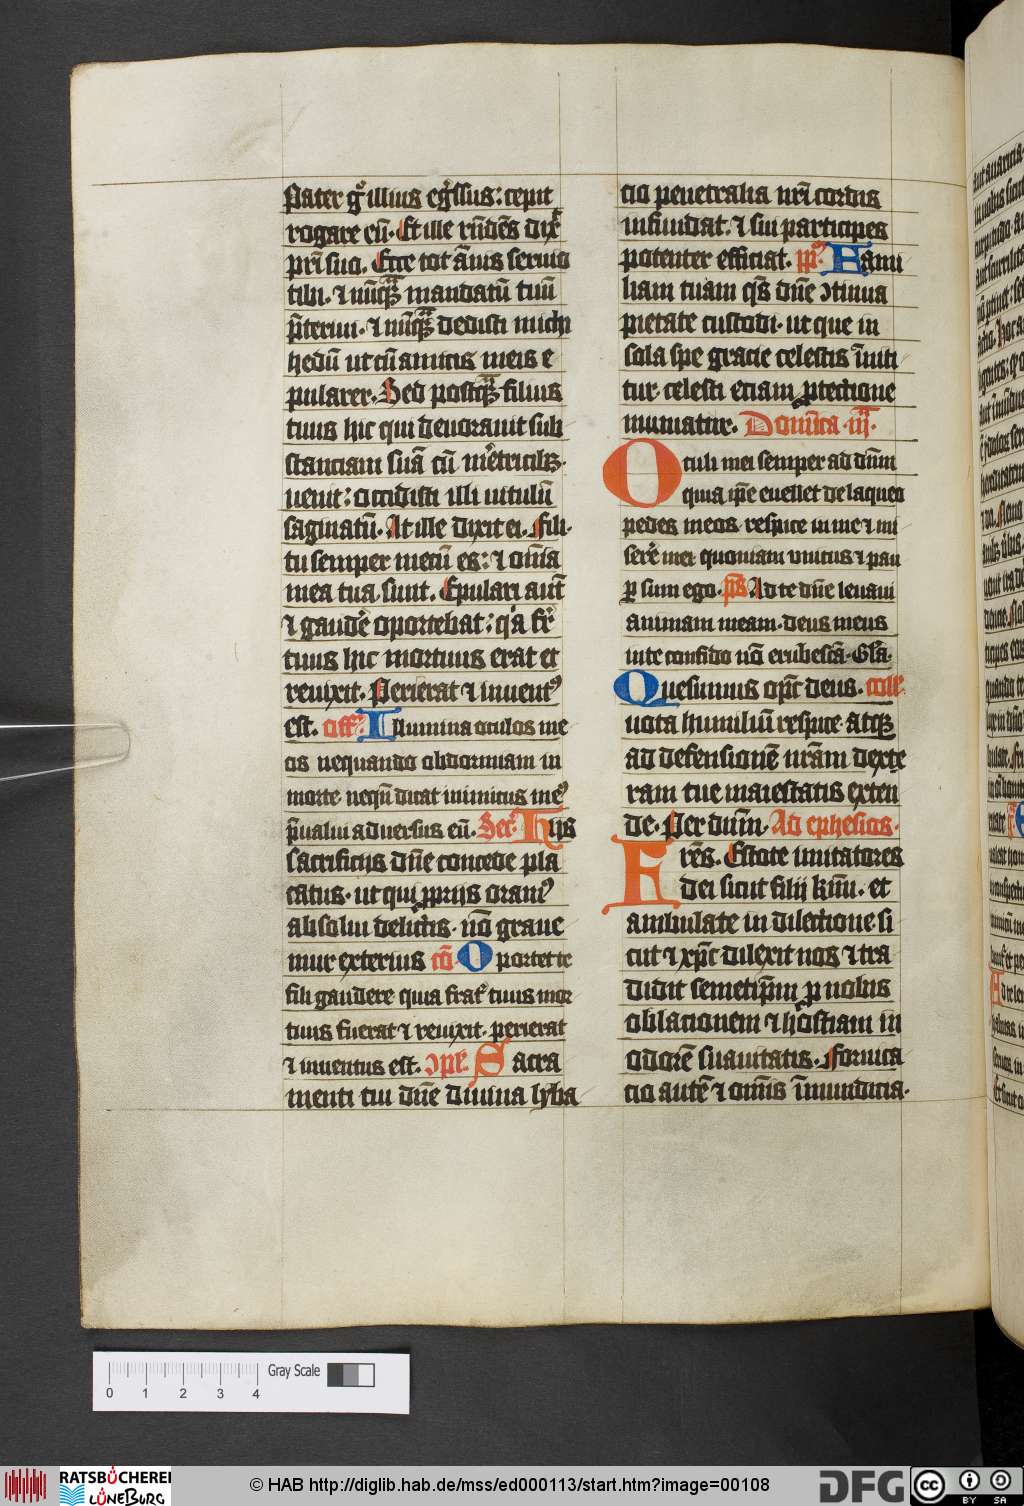 Pater gͦ illius eg̾ssus: cepit
rogare eū. Et ille rn̄dēs dix̾
pr̄i suo. Ecce tot ānis seruio
tibi. ⁊ nūqͣ mandatū tuū
p̄teriui. ⁊ nūqͣ dedisti michi
hedū ut cū amicis meis e
pularer. Sed postqͣ filius
tuus hic qui deuorauit sub
stanciam suā cū me̾tricibꝫ.
uenit: occidisti illi uitulū
saginatū. At ille dixit ei. Fili.
tu semper mecū es: ⁊ om̄ia
mea tua sunt. Epulari aut̄
⁊ gaude̾ oportebat: qͥa fr̄
tuus hic mortuus erat et
reuixit. Perierat ⁊ inuentꝰ
est. Off̾. Illumina oculos me
os nequando obdormiam in
morte. neqū dicat inimicus meꝰ
p̄ualui aduersus eū. Secͬ. Hijs
sacrificijs dn̄e concede pla
catus. ut qui ꝓprijs oramꝰ
absolui delictis. nō graue
mur exterius cō. Oportet te
fili gaudere quia frat̾ tuus mor
tuus fuerat ⁊ reuixit. perierat
⁊ inuentus est. ɔpl̄. Sacra
menti tui dn̄e diuina lyba
cio penetralia nr̄i cordis
infundat. ⁊ sui participes
potenter efficiat. pp̄. Fami
liam tuam qs̄ dn̄e ɔtinua
pietate custodi. ut que in
sola spe gracie celestis īniti
tur. celesti eciam ꝓtectione
muniatur. Domīca .iii.
Oculi mei semper ad dn̄m
quia ip̄e euellet de laqueo
pedes meos. respice in me ⁊ mi
sere̾ mei. quoniam unicus ⁊ pau
ꝑ sum ego. ps̄ Ad te dn̄e leuaui
animam meam. deus meus
in te confido nō erubescā. Gl̄a.
Quesumus op̄c deus. coll̾.
uota humiliū respice. atqꝫ
ad defensionē nr̄am dexte
ram tue maiestatis exten
de. Per dn̄m. Ad ephesios.
Fr̄es. Estote imitatores
dei sicut filij k̄mi. et
ambulate in dilectione si
cut ⁊ xp̄c dilexit nos ⁊ tra
didit semetip̄m ꝓ nobis
oblacionem ⁊ hostiam in
odorē suauitatis. Fornica
cio autē ⁊ om̄is īmundicia.
Gray Scale
0 1 2 3 4
RATSBÜCHEREI
LÜNEBURG
© HAB http://diglib.hab.de/mss/ed000113/start.htm?image=00108
DFG
cc BY SA